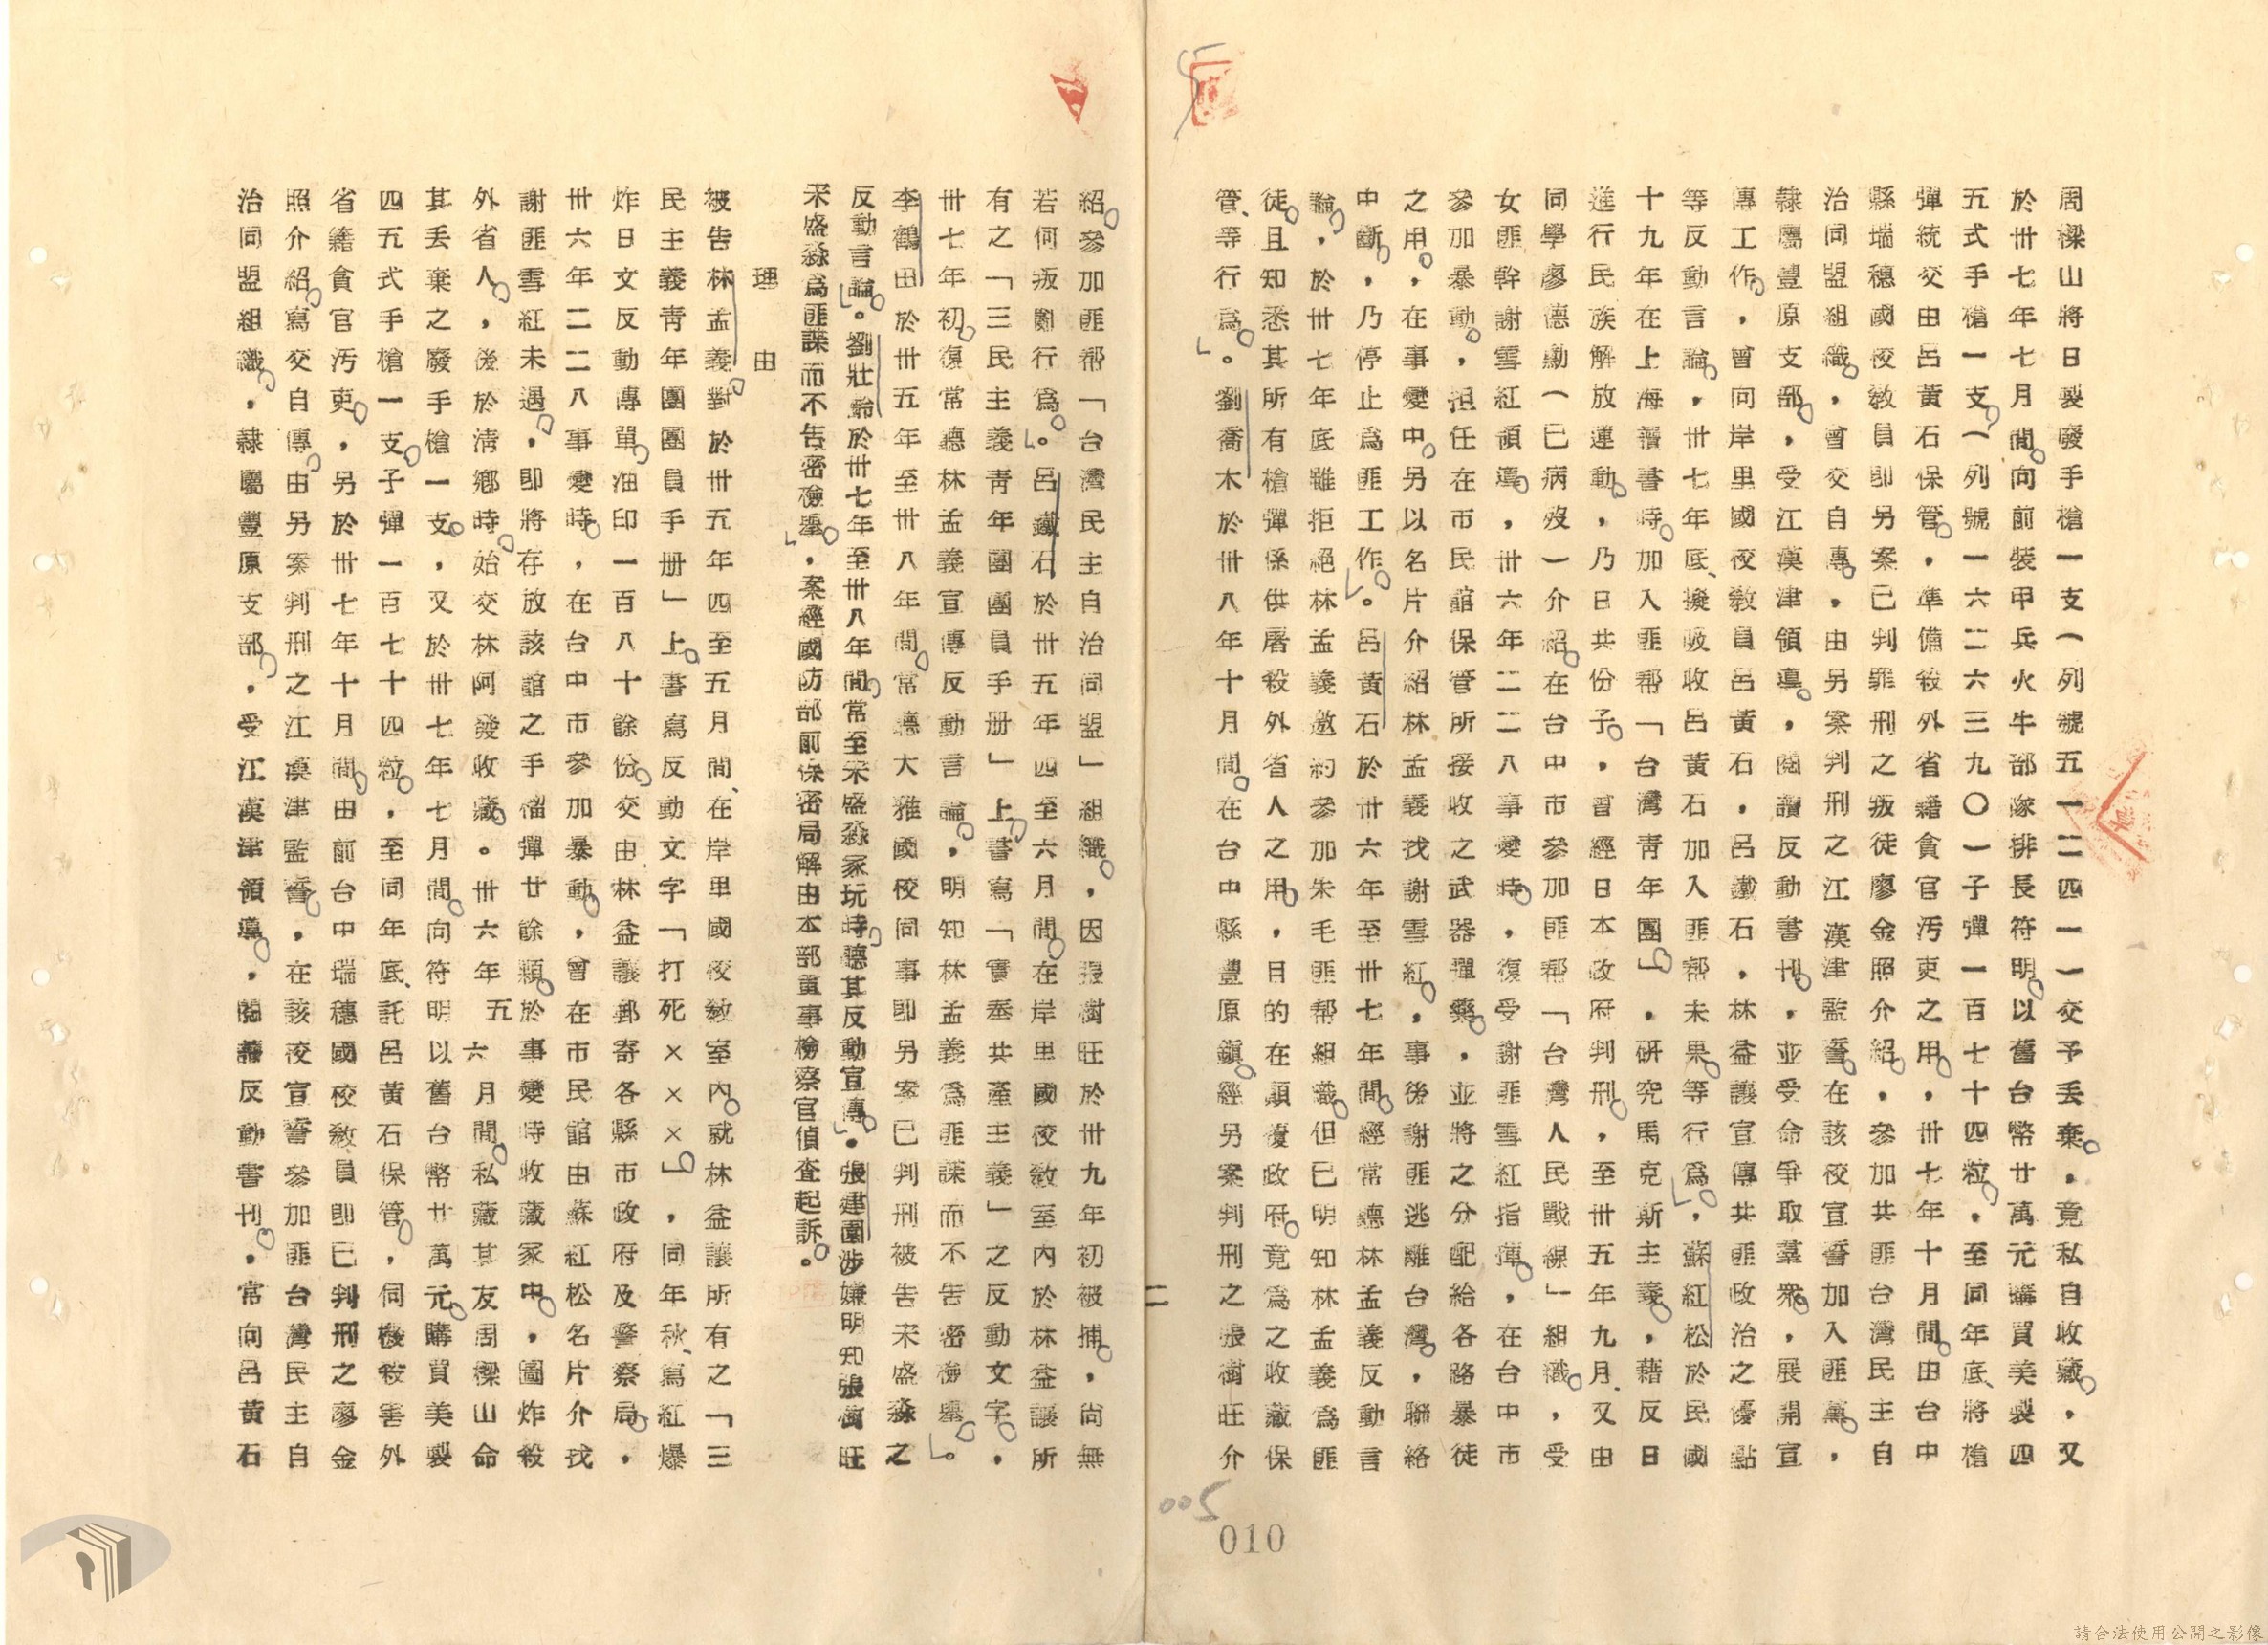 周樑山將日製廢手槍一支（列號五一二四一一交予丟棄，竟私自收藏，又
於卅七年七月間向前裝甲兵火牛部隊排長符明以舊台幣廿萬元購買美製四
五式手槍一支（列號一六二六三九〇一子彈一百七十四粒，至同年底、將槍
彈統交由呂黃石保管，準備殺外省籍貪官汚吏之用，卅七年十月間由台中
縣瑞穗國校教員即另案已判罪刑之叛徒廖金照介紹，參加共匪台灣民主自
治同盟組織，曾交自傳，由另案判刑之江漢津監誓在該校宣誓加入匪黨，
隸屬豐原支部，受江漢津領導，閱讀反動書刊，並受命爭取羣衆，展開宣
傳工作，曾向岸里國校教員呂黃石，呂鐵石，林益謙宣傳共匪政治之優點
等反動言論，卅七年底、擬吸收呂黃石加入匪帮未果等行爲，蘇紅松於民國
十九年在上海讀書時加入匪帮「台灣青年團」，研究馬克斯主義，藉反日
進行民族解放運動，乃日共份子，曾經日本政府判刑，至卅五年九月、又由
同學廖德勳（已病歿一介紹在台中市參加匪帮「台灣人民戰線」組織，受
女匪幹謝雪紅領導，卅六年二二八事變時，復受謝匪雪紅指揮，在台中市
參加暴動，担任在市民館保管所接收之武器彈藥，並將之分配給各路暴徒
之用，在事變中另以名片介紹林孟義找謝雪紅，事後謝匪逃離台灣，聯絡
中斷，乃停止爲匪工作。呂黃石於卅六年至卅七年間經常聽林孟義反動言
論，於卅七年底雖拒絕林孟義邀約參加朱毛匪帮組織但已明知林孟義爲匪
徒，且知悉其所有槍彈係供屠殺外省人之用，目的在顚覆政府竟爲之收藏保
管、等行爲。劉喬木於卅八年十月間在台中縣豐原鎭經另案判刑之張樹旺介
二
005
010
紹參加匪帮「台灣民主自治同盟」組織，因張樹旺於卅九年初被捕，尚無
若何叛亂行爲。呂鐵石於卅五年四至六月間在岸里國校教室內於林益謙所
有之「三民主義青年團團員手册」上書寫「實奉共產主義」之反動文字，
卅七年初復常聽林孟義宣傳反動言論，明知林孟義爲匪諜而不告密檢舉。
李鶴田於卅五年至卅八年間常聽大雅國校同事即另案已判刑被告宋盛淼之
反動言論。劉壯齡於卅七年至卅八年間常至宋盛淼家玩時聽其反動宣傳。張建園涉嫌明知張樹旺
宋盛淼爲匪諜而不告密檢舉，案經國防部前保密局解由本部軍事檢察官偵查起訴。
理由
被告林孟義對於卅五年四至五月間、在岸里國校敎室內就林益謙所有之「三
民主義青年團團員手册」上書寫反動文字「打死×××」，同年秋、寫紅爆
炸日文反動傳單油印一百八十餘份交由林益謙郵寄各縣市政府及警察局，
卅六年二二八事變時，在台中市參加暴動，曾在市民館由蘇紅松名片介找
謝匪雪紅未遇，即將存放該館之手榴彈廿餘顆於事變時收藏家中，圖炸殺
外省人，後於淸鄉時始交林阿發收藏。卅六年五六月間私藏其友周樑山命
其丟棄之廢手槍一支，又於卅七年七月間向符明以舊台幣廿萬元購買美製
四五式手槍一支子彈一百七十四粒，至同年底、託呂黃石保管，伺機殺害外
省籍貪官汚吏，另於卅七年十月間由前台中瑞穗國校敎員即已判刑之廖金
照介紹寫交自傳由另案判刑之江漢津監誓，在該校宣誓參加匪台灣民主自
治同盟組織，隸屬豐原支部，受江漢津領導，閱讀反動書刊，常向呂黃石
請合法使用公開之影像